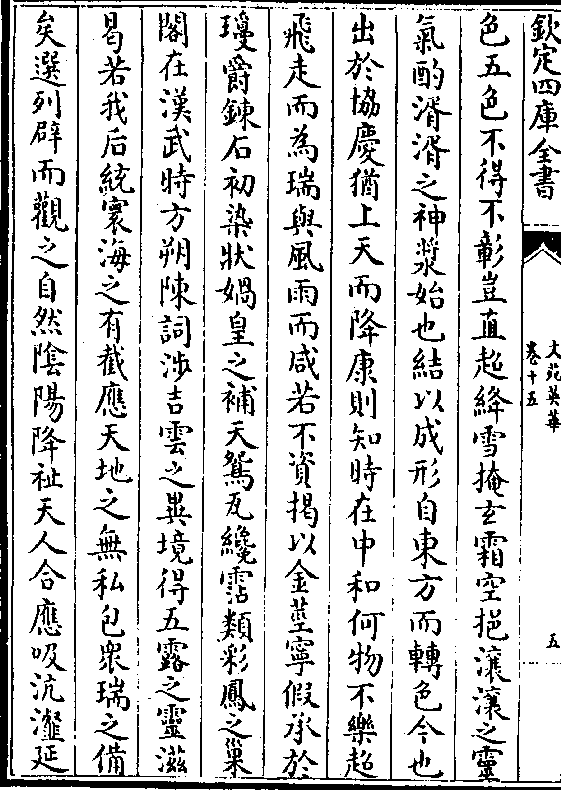 欽定四庫全書
文苑英華
卷十五
五
色五色不得不彰豈直超絳雪掩玄霜空挹瀼瀼之靈
氣酌湑湑之神漿始也結以成形自東方而轉色今也
出於協慶猶上天而降康則知時在中和何物不樂超
飛走而為瑞與風雨而咸若不資揭以金莖寧假承於
瓊爵鍊石初染狀媧皇之補天鴛瓦纔霑類彩鳳之巢
閣在漢武時方朔陳詞涉吉雲之異境得五露之靈滋
曷若我后統寰海之有截應天地之無私包衆瑞之備
矣選列辟而觀之自然隂陽降祉天人合應吸沆瀣延